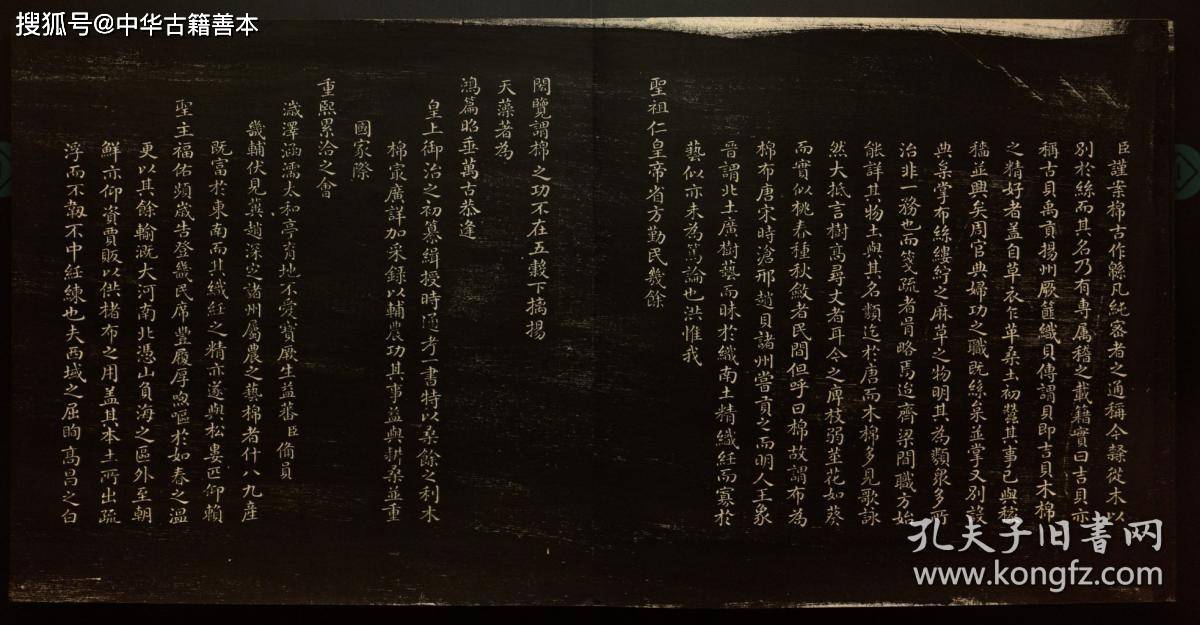 搜狐号@中华古籍善本
臣謹案棉古作緜凡純密者之通稱今隸從木以
別於絲而其名乃有專属稽之載籍實曰吉貝亦
稱古貝禹貢揚州厥篚織貝傳謂貝即吉貝木棉
之精好者盖自草衣乍革桑土初蠶其事已與稼
穡並興矣周官典婦功之職既絲枲並掌又別設
典枲掌布緦縷紵之麻草之物明其為類衆多所
治非一務也而箋疏者肎略焉迨齊梁間職方始
能詳其物土與其名類迄於唐而木棉多見歌詠
然大抵言樹高尋丈者耳今之庳枝弱莖花如葵
而實似桃春種秋斂者民間但呼曰棉故謂布為
棉布唐宋時滄邢趙貝諸州嘗貢之而明人王象
晉謂北土廣樹藝而昧於織南土精織絍而寡於
藝似亦未為篤論也洪惟我
聖祖仁皇帝省方勤民幾餘
閱覽謂棉之功不在五穀下摛揚
天藻著為
鴻篇昭垂萬古恭逢
皇上御治之初纂緝授時通考一書特以桑餘之利木
棉㝡廣詳加采録以輔農功其事益與耕桑並重
國家際
重熙累洽之會
濊澤涵濡太和亭育地不愛寶厥生益蕃臣偹員
畿輔伏見冀趙深定諸州屬農之藝棉者什八九產
既富於東南而其織絍之精亦遂與松婁匹仰賴
聖主福佑頻歲告登畿民席豐履厚呴嘔於如春之温
更以其餘輸溉大河南北憑山負海之區外至朝
鮮亦仰資賈販以供楮布之用盖其本土所出疏
浮而不韌不中絍練也夫西域之屈眴高昌之白
孔夫子旧书网
www.kongfz.com